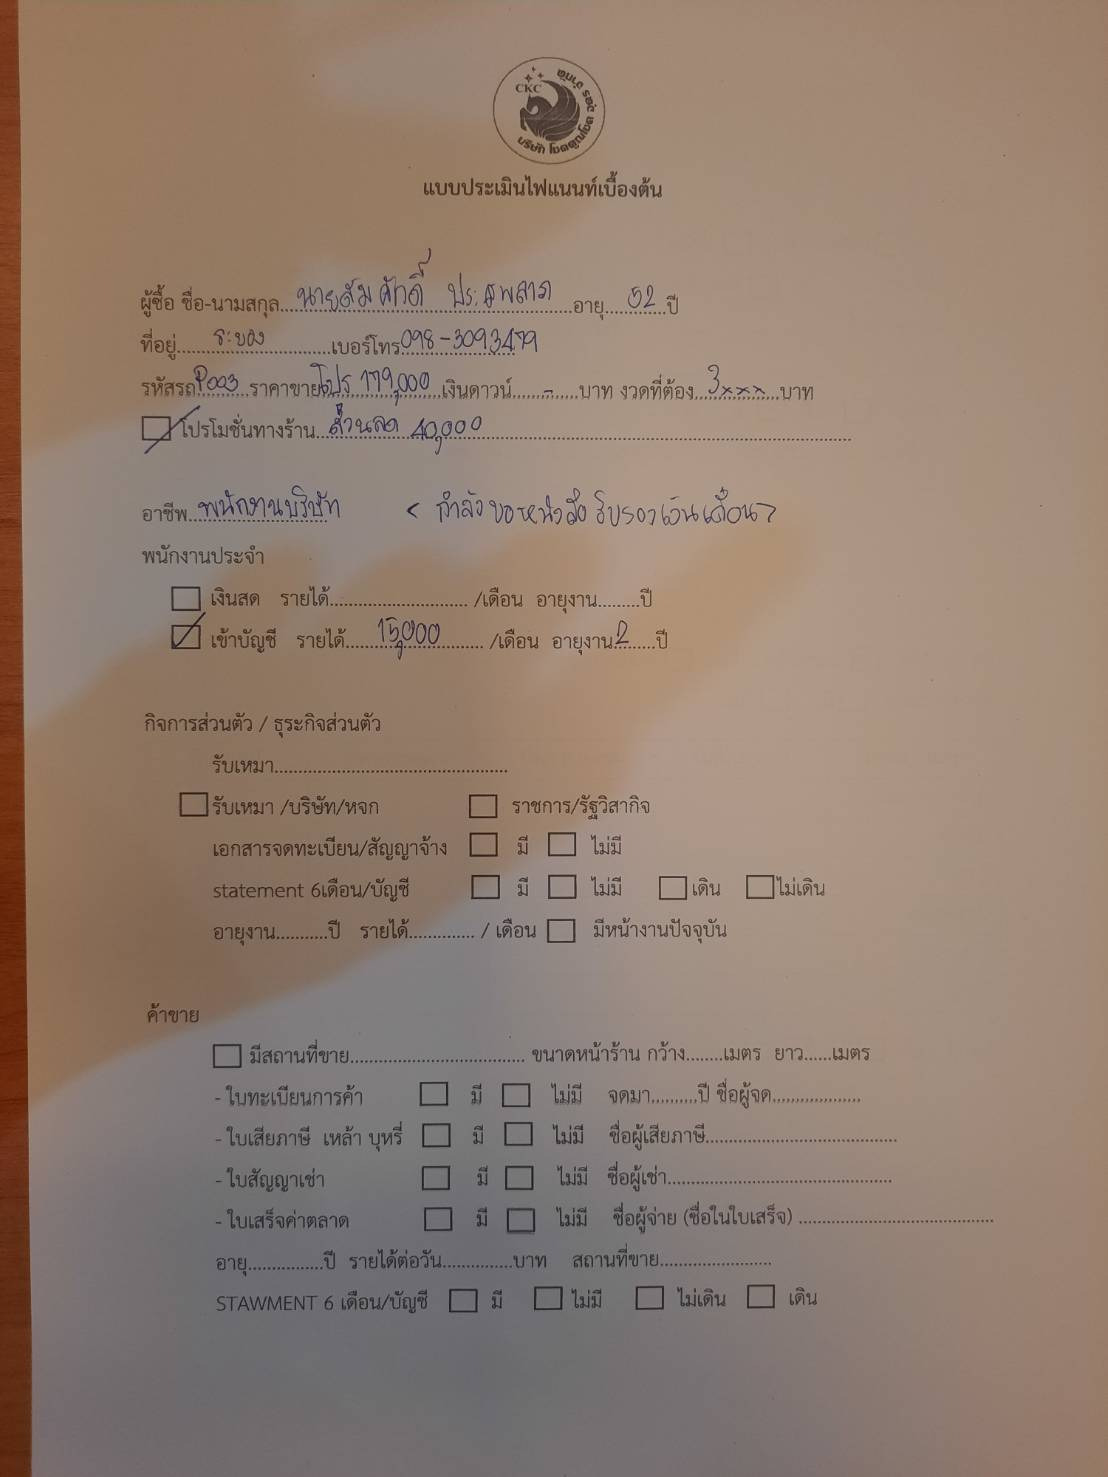 CKC
บริษัท โชคคูณโชค คูตร จำกัด
แบบประเมินไฟแนนท์เบื้องต้น
ผู้ซื้อ ชื่อ-นามสกุล....นายสมศักดิ์....อายุ....52....ปี
ที่อยู่....ระยอง....เบอร์โทร098-3093479
รหัสรถ P003 ราคาขาย โปร 179,000 เงินดาวน์....-....บาท งวดที่ต้อง....3xxx....บาท
โปรโมชั่นทางร้าน....ส่วนลด 40,000
อาชีพ...พนักงานบริษัท < กำลังขอหนังสือรับรองเงินเดือน>
พนักงานประจำ
เงินสด รายได้............................ /เดือน อายุงาน.........ปี
เข้าบัญชี รายได้......15,000......... /เดือน อายุงาน2.........ปี
กิจการส่วนตัว / ธุระกิจส่วนตัว
รับเหมา................................................
รับเหมา /บริษัท/หจก ราชการ/รัฐวิสากิจ
เอกสารจดทะเบียน/สัญญาจ้าง มี ไม่มี
statement 6เดือน/บัญชี มี ไม่มี เดิน ไม่เดิน
อายุงาน...........ปี รายได้.............. / เดือน มีหน้างานปัจจุบัน
ค้าขาย
มีสถานที่ขาย.................................... ขนาดหน้าร้าน กว้าง........เมตร ยาว......เมตร
- ใบทะเบียนการค้า มี ไม่มี จดมา..........ปี ชื่อผู้จด...................
- ใบเสียภาษี เหล้า บุหรี่ มี ไม่มี ชื่อผู้เสียภาษี........................................
- ใบสัญญาเช่า มี ไม่มี ชื่อผู้เช่า...............................................
- ใบเสร็จค่าตลาด มี ไม่มี ชื่อผู้จ่าย (ชื่อในใบเสร็จ) .........................................
อายุ................ปี รายได้ต่อวัน...............บาท สถานที่ขาย.......................
STAWMENT 6 เดือน/บัญชี มี ไม่มี ไม่เดิน เดิน